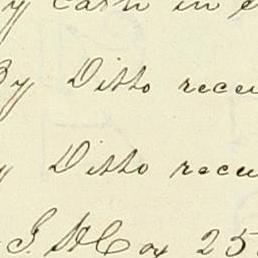 y Cash in
By Ditto rece
y Ditto rece
J. H Cox 25